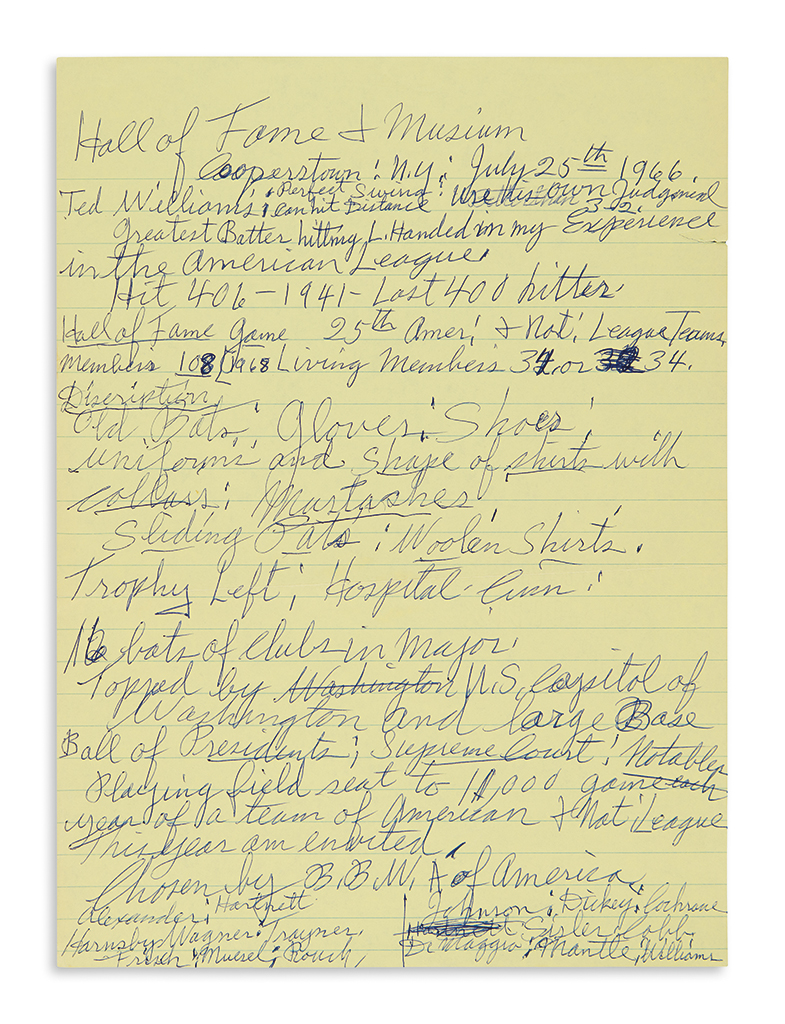 Hall of Fame & Musium
Cooperstown: N.Y: July 25th 1966.
Ted Williams: Perfect Swing: Use his own Judgment
can hit Distance 3-2.
Greatest Batter hitting L. Handed in my Experience
in the American League.
Hit 406-1941- Last 400 hitter.
Hall of Fame Game 25th Amer: & Nat: League Teams.
Members 108 1968 Living Members 34, or 34.
Discription
Old Bats; Gloves; Shoes;
Uniforms and Shape of shirts with
collars; Mustaches,
Sliding Pats; Woolen Shirts.
Trophy Left; Hospital-
16 bats of clubs in Major.
Topped by Washington U.S. Capitol of
Washington and large Base
Ball of Presidents; Supreme Court; Notables
Playing field seat to 11,000 game each
year of a team of American & Nat: League
This year am envited.
Chosen by B.B.W.A of America.
Alexander; Hartnett Johnson; Dickey; Cochrane
Hornsby; Wagner; Traynor. Hartnett Sisler; Cobb
Frisch; Muesel; Rouch, DiMaggio; Mantle; Williams